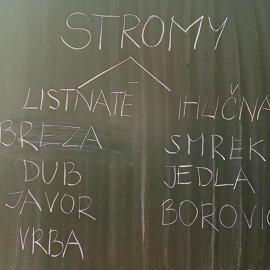 STROMY
LISTNATÉ
BREZA
DUB
JAVOR
VRBA
IHLIČNA
SMREK
JEDLA
BOROVIC